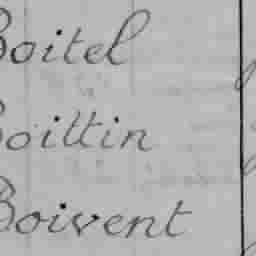 Boitel
Boittin
Boivent